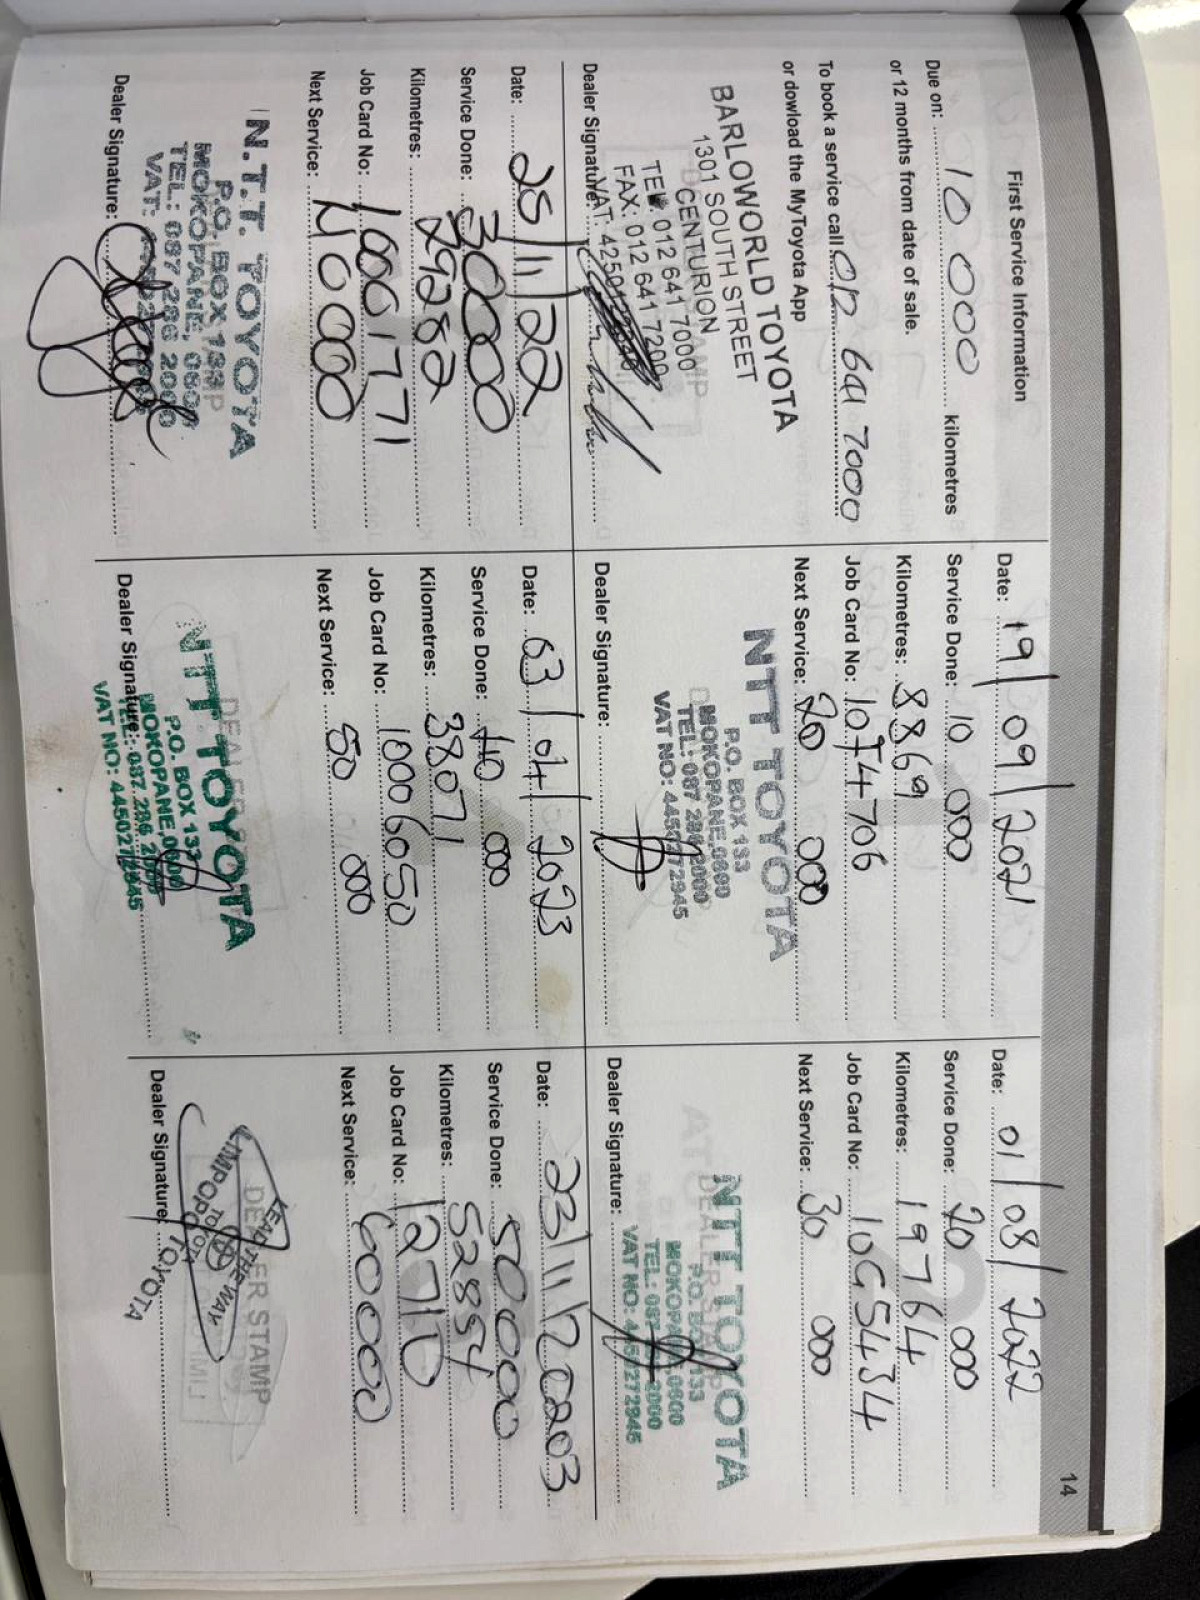 14
First Service Information
Due on: 10 000 kilometres
or 12 months from date of sale.
To book a service call 012 641 7000
or dowload the MyToyota App
BARLOWORLD TOYOTA
1301 SOUTH STREET
CENTURION
TEL: 012 641 7000
FAX: 012 641 7200
Dealer Signature:
Date: 19/09/2021
Service Done: 10 000
Kilometres: 8869
Job Card No:
Next Service: 20 000
NTT TOYOTA
P.O. BOX 133
MOKOPANE, 0600
TEL: 087 286 2000
VAT NO: 4450272945
Dealer Signature:
Date: 01/08/2022
Service Done: 20 000
Kilometres: 19764
Job Card No: 10G5434
Next Service: 30 000
NTT TOYOTA
P.O. BOX 133
MOKOPANE, 0600
TEL: 087 2000
VAT NO: 4450272945
Dealer Signature:
Date: 25/11/22
Service Done: 30000
Kilometres: 29282
Job Card No:
Next Service: 40000
N.T.T. TOYOTA
P.O. BOX 133
MOKOPANE, 0600
TEL: 087 286 2000
VAT:
Dealer Signature:
Date: 03/04/2023
Service Done: 40 000
Kilometres: 38071
Job Card No: 1006050
Next Service: 50 000
NTT TOYOTA
P.O. BOX 133
MOKOPANE, 0600
TEL: 087 286 2000
VAT NO: 4450272945
Dealer Signature:
Date: 23/11/20203
Service Done: 50000
Kilometres: 52854
Job Card No:
Next Service: 60000
DEALER STAMP
LEAD THE WAY
LIMPOPO TOYOTA
Dealer Signature: